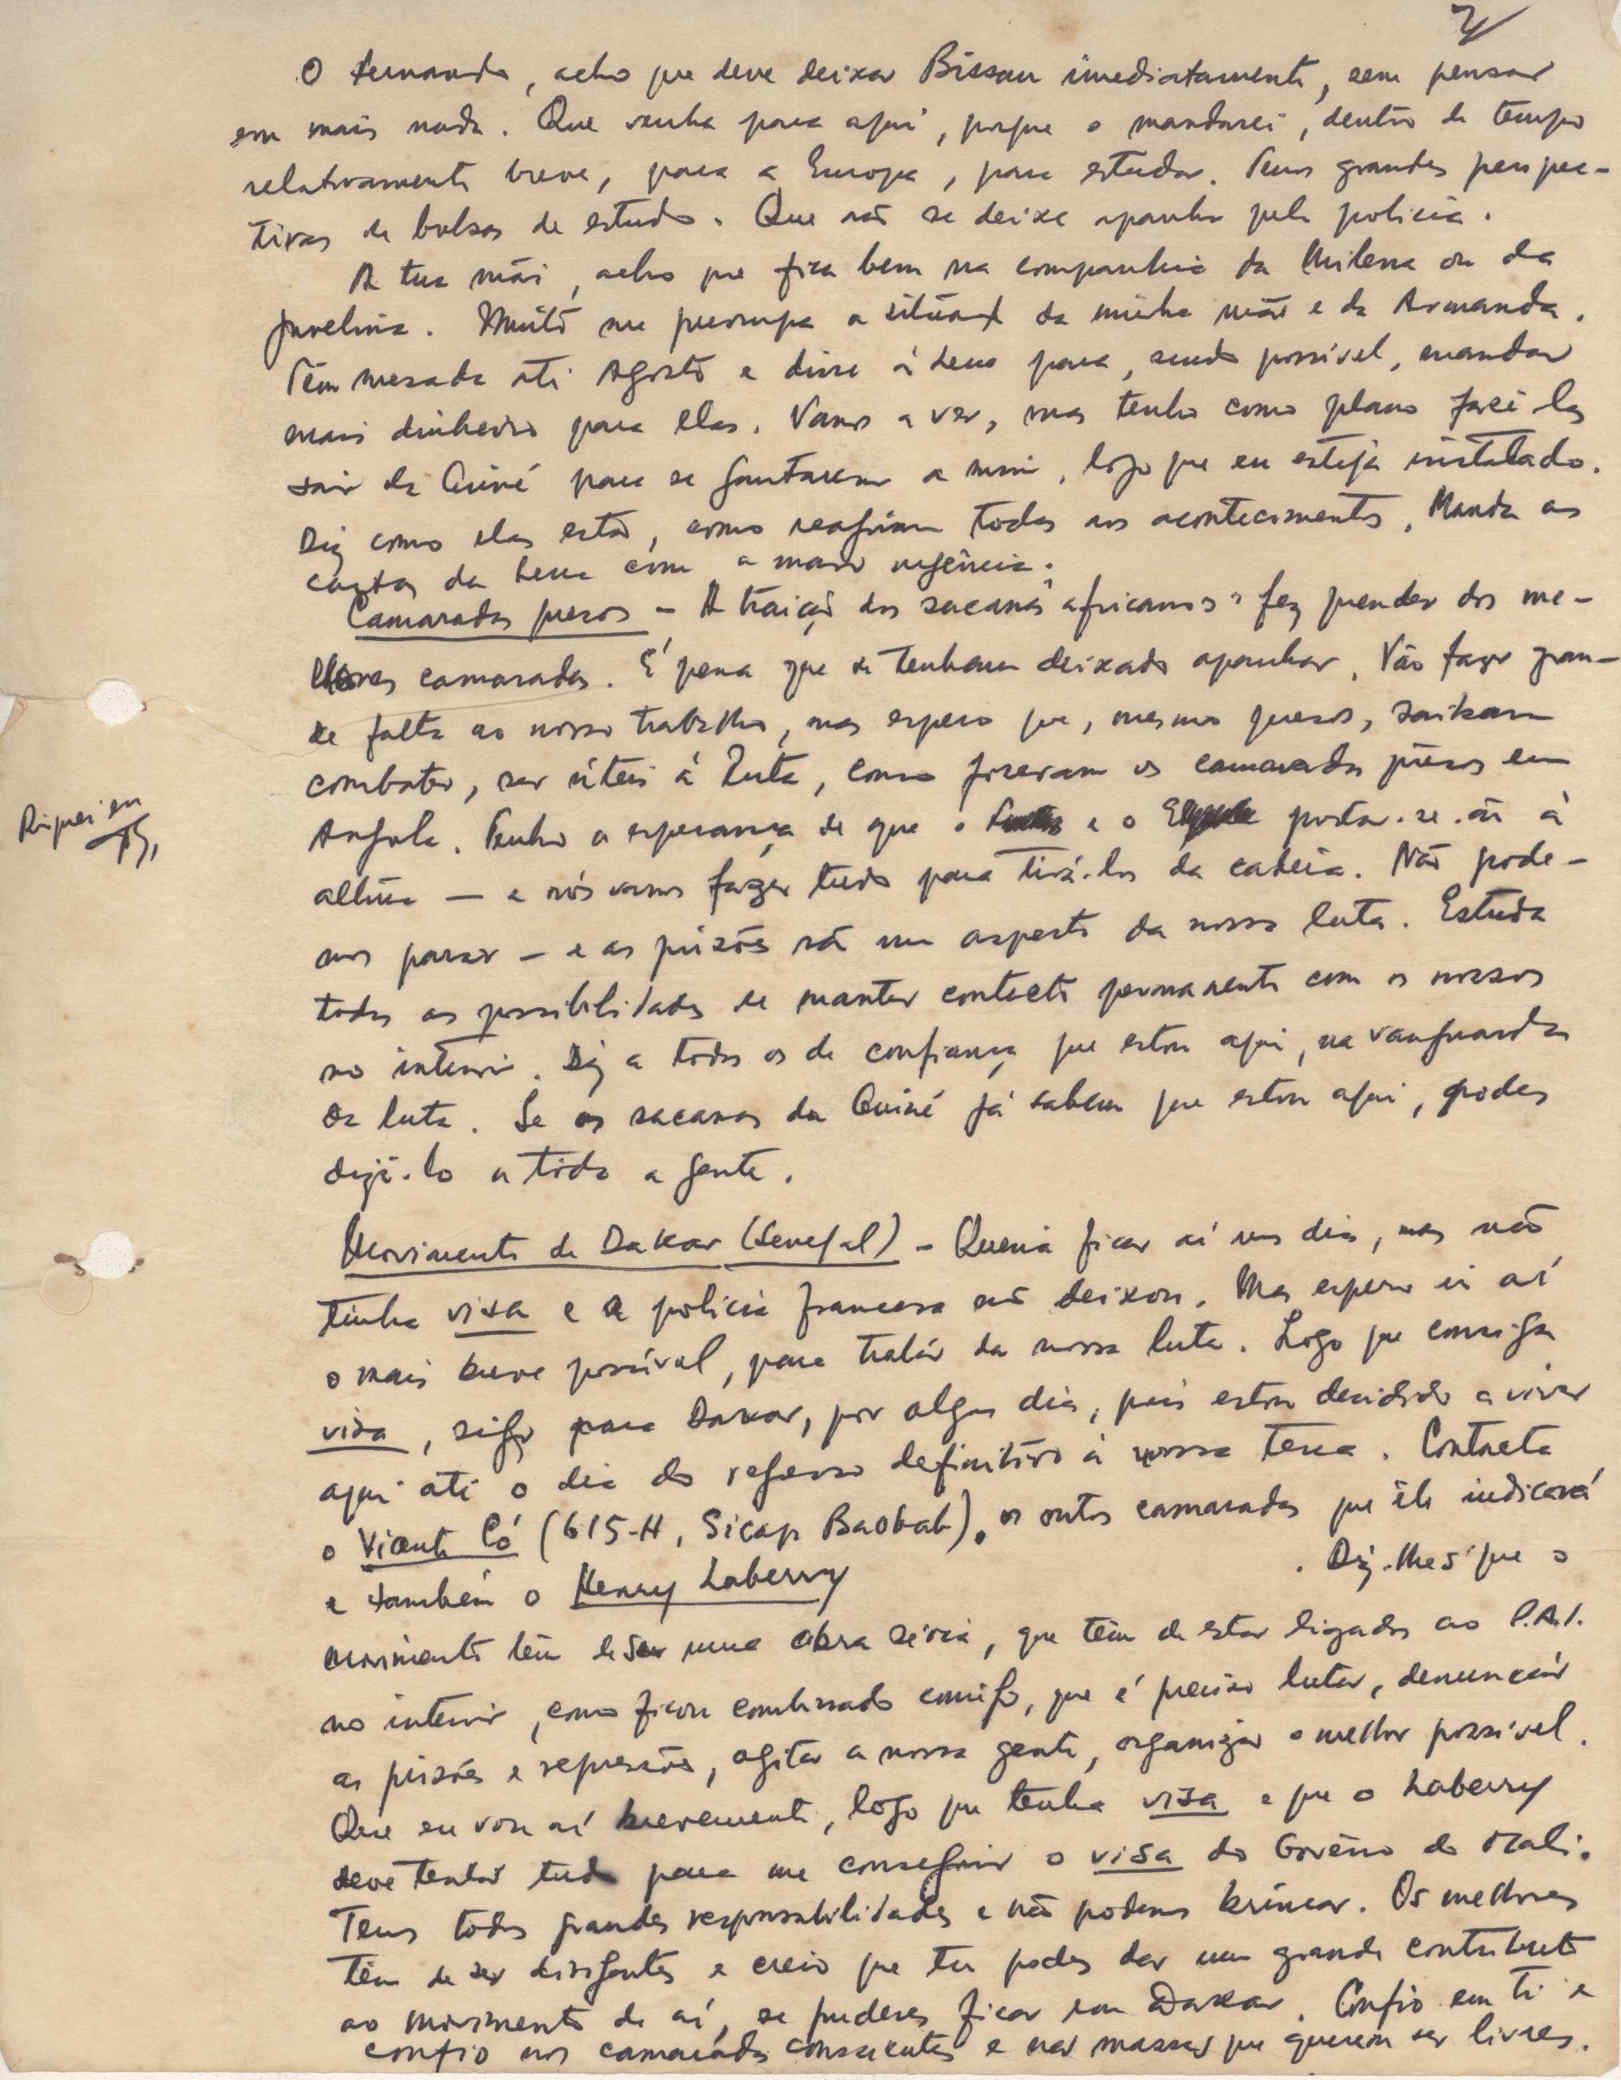 2
O Fernando, acho que deve deixar Bissau imediatamente, sem pensar
em mais nada. Que venha para aqui, porque o mandarei, dentro de tempo
relativamente breve, para a Europa, para estudar. Temos grandes perspec-
tivas de bolsas de estudo. Que não se deixe apanhar pela polícia.
A tua mãi, acho que fica bem na companhia da Milena ou da
Juvelina. Muito me preocupa a situação da minha mãi e da Armanda.
Têm mesada até Agosto e disse à Lena para, sendo possível, mandar
mais dinheiro para elas. Vamos a ver, mas tenho como plano fazê-las
sair da Guiné para se juntarem a mim, logo que eu esteja instalado.
Diz como elas estão, como reagiram todas aos acontecimentos. Manda as
cartas da Lena com a maior urgência.
Camaradas presos - A traição dos sacanas "africanos" fez prender dos me-
lhores camaradas. É pena que se tenham deixado apanhar. Vão fazer gran-
de falta ao nosso trabalho, mas espero que, mesmo presos, saibam
combater, ser úteis à luta, como fizeram os camaradas presos em
Angola. Tenho a esperança de que o e o portar-se-ão à
altura — e nós vamos fazer tudo para tirá-los da cadeia. Não pode-
mos parar — e as prisões são um aspecto da nossa luta. Estuda
todas as possibilidades de manter contacto permanente com os nossos
no interior. Diz a todos os de confiança que estou aqui, na vanguarda
da luta. Se os sacanas da Guiné já sabem que estou aqui, podes
dizê-lo a toda a gente.
Movimento de Dakar (Senegal) - Queria ficar aí uns dias, mas não
tinha visa e a polícia francesa não deixou. Mas espero ir aí
o mais breve possível, para tratar da nossa luta. Logo que consiga
visa, sigo para Dakar, por alguns dias, pois estou decidido a viver
aqui até o dia do regresso definitivo à nossa terra. Contacta
o Vicente Có (615-H, Sicap Baobab), os outros camaradas que êle indicará
e também o Henry Labery . Diz-lhes que o
movimento têm de ser uma obra séria, que têm de estar ligados ao P.A.I.
no interior, como ficou combinado comigo, que é preciso lutar, denunciar
as prisões e repressões, agitar a nossa gente, organizar o melhor possível.
Que eu vou aí brevemente, logo que tenha visa e que o Labery
deve tentar tudo para me conseguir o visa do Govêrno do Mali.
Temos todos grandes responsabilidades e não podemos brincar. Os melhores
têm de ser dirigentes e creio que tu podes dar um grande contributo
ao movimento de aí, se puderes ficar em Dakar. Confio em ti e
confio nos camaradas conscientes e nas massas que querem ser livres.
Risquei eu